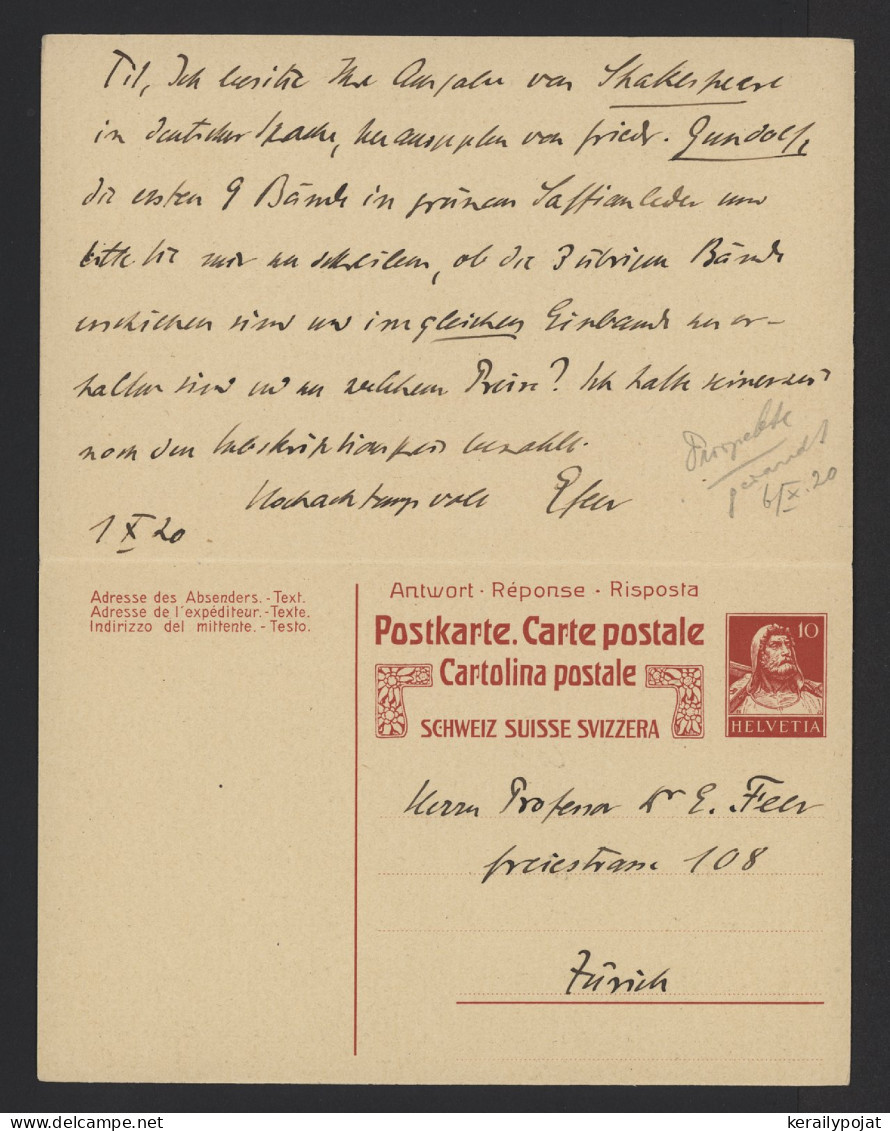 Tit, Ich besitze Ihre Ausgabe von Shakespeare
in deutscher Sprache, herausgegeben von Friedr. Gundolf,
die ersten 9 Bände in grünem Saffianleder und
bitte Sie mir zu schreiben, ob die 3 übrigen Bände
erschienen sind und im gleichen Einbande zu er-
halten sind und zu welchem Preise? Ich hatte seinerzeit
noch den Subskriptionspreis bezahlt.
Hochachtungsvoll EFeer
1 X 20
Prospekte
gesandt
6/X.20
Adresse des Absenders. - Text.
Adresse de l'expéditeur. - Texte.
Indirizzo del mittente. - Testo.
Antwort · Réponse · Risposta
Postkarte. Carte postale
Cartolina postale
SCHWEIZ SUISSE SVIZZERA
10
HELVETIA
Herrn Professor Dr E. Feer
Freiestrasse 108
Zürich
kerailypojat